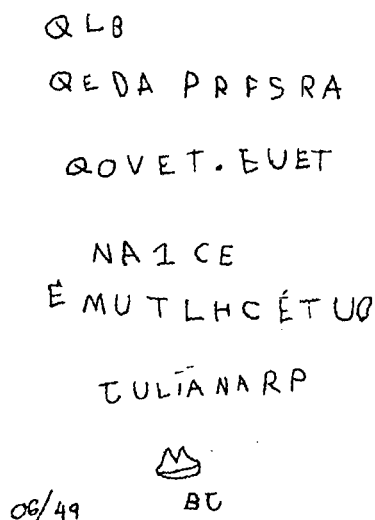 QLB
QEDA PRFSRA
QOVET. EUET
NA1CE
É MUTLHCÉTUO
TULIANARP
BC
06/49